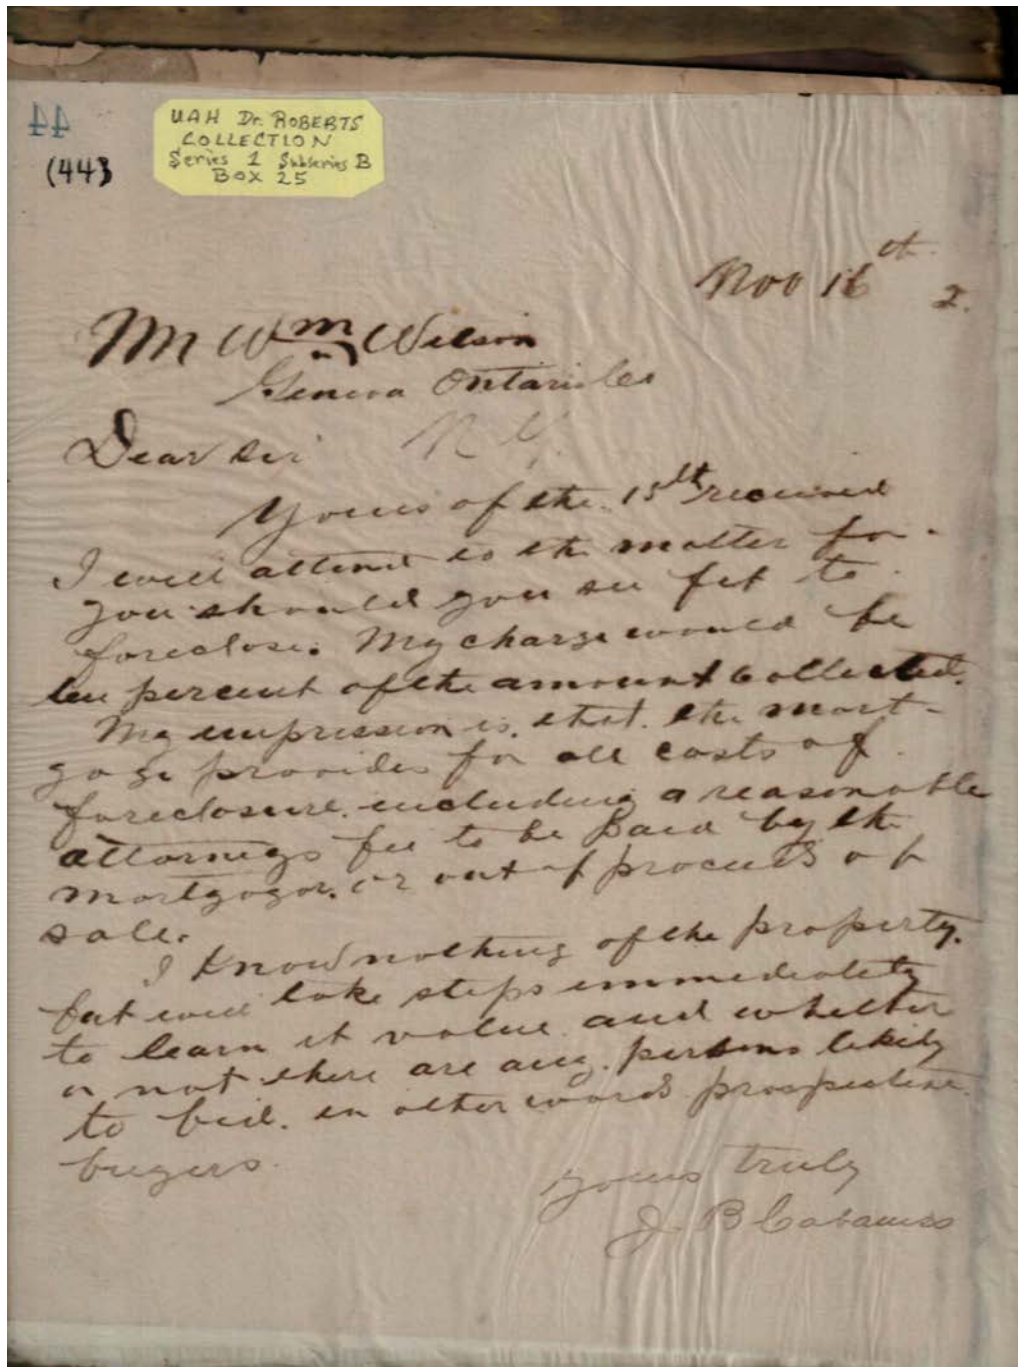 44
(443
UAH Dr. ROBERTS
COLLECTION
Series 1 Subseries B
BOX 25
Nov 16th 2.
Mr Wm Wilson
Geneva Ontario Co
N. Y.
Dear Sir
Yours of the 15th received
I will attend to the matter for
you should you see fit to
foreclose. My charge would be
ten percent of the amount collected.
My impression is, that the mort-
gage provides for all costs of
foreclosure including a reasonable
attorneys fee to be paid by the
mortgagor. or out of proceeds of
sale.
I know nothing of the property.
but will take steps immediately
to learn it value and whether
or not there are any persons likely
to bid. in other words prospective
buyers.
Yours truly
J. B Cabaniss